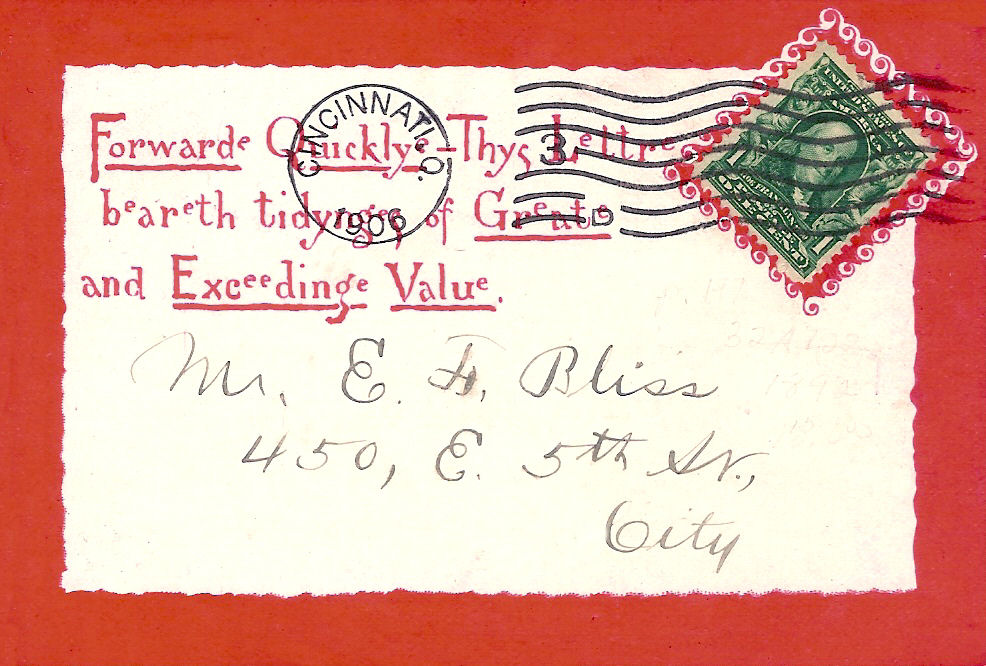 Forwarde Quicklye - Thys Lettre
beareth tidynges of Greate
and Exceedinge Value.
CINCINNATI, O.
1906
3
D
Mr. E. F. Bliss
450, E. 5th St.,
City
1 1